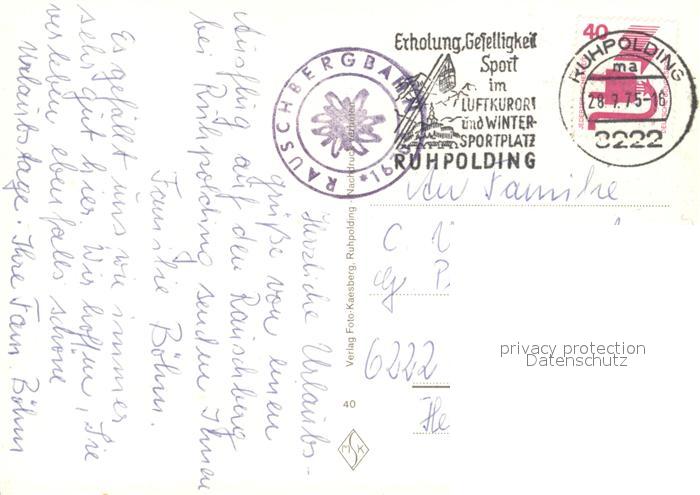 Herzliche Urlaubs-
grüße von einem
Ausflug auf den Rauschberg
bei Ruhpolding senden Ihnen
Familie Böhm.
Es gefällt uns wie immer
sehr gut hier. Wir hoffen, Sie
verleben ebenfalls schöne
Urlaubstage. Ihre Fam. Böhm
RAUSCHBERGBAHN
Erholung, Geselligkeit
Sport
im
LUFTKURORT
und WINTER-
SPORTPLATZ
RUHPOLDING
40
RUHPOLDING
ma
28.7.75-16
8222
An Familie
C.
6222
Verlag Foto-Kaesberg, Ruhpolding - Nachdruck verboten
40
MSK
privacy protection
Datenschutz